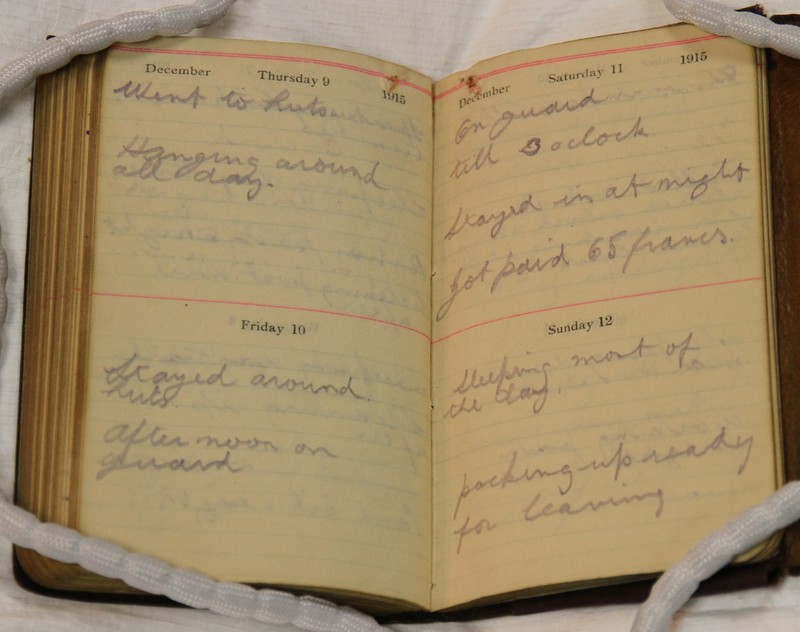 December Thursday 9 1915
Went to huts
Hanging around
all day.
Friday 10
Stayed around
huts
Afternoon on
guard
December Saturday 11 1915
On guard
till 3 oclock
Stayed in at night
Got paid 65 francs.
Sunday 12
Sleeping most of
the day.
packing up ready
for leaving